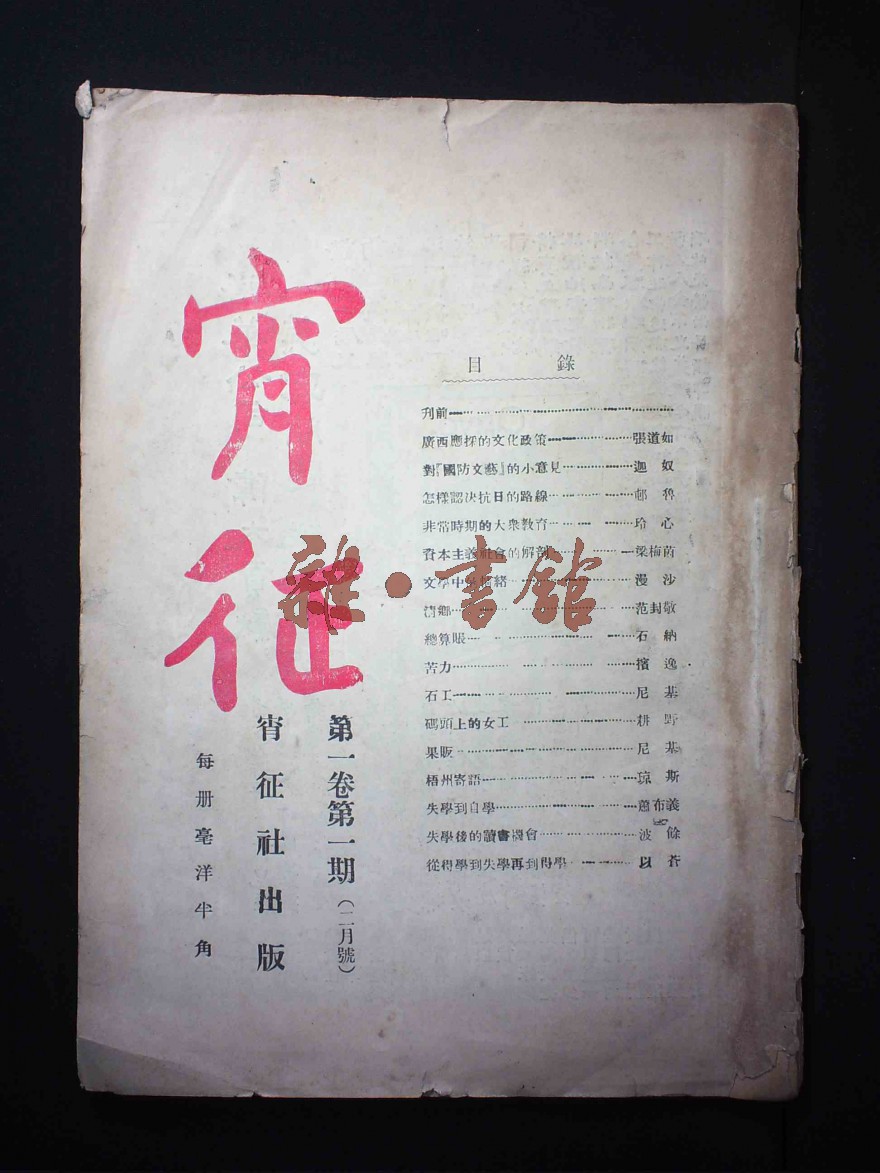 宵征
第一卷第一期(二月號)
宵征社出版
每册毫洋半角
目錄
刋前
廣西應採的文化政策 張道如
對『國防文藝』的小意見 迦奴
怎樣認決抗日的路線 邨魯
非常時期的大衆敎育 玲心
資本主義社會的解剖 梁梅茵
文學中 情緒 漫沙
清鄉 范封敬
總算賬 石納
苦力 擯逸
石工 尼基
碼頭上的女工 耕野
果販 尼基
梧州寄語 琼斯
失學到自學 蕭布義
失學後的讀書機會 波餘
從得學到失學再到得學 以苍
雜·書館